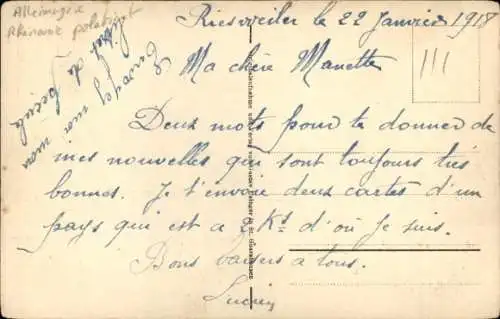 Allemagne
Rhénanie palatinat
Riesweiler le 22 Janvier 1918
Ma chère Manette
Deux mots pour te donner de
mes nouvelles qui sont toujours très
bonnes. Je t'envoie deux cartes d'un
pays qui est a 2 Ks d'où je suis.
Bons baisers a tous.
Lucien
Envoyez moi mon
livret de